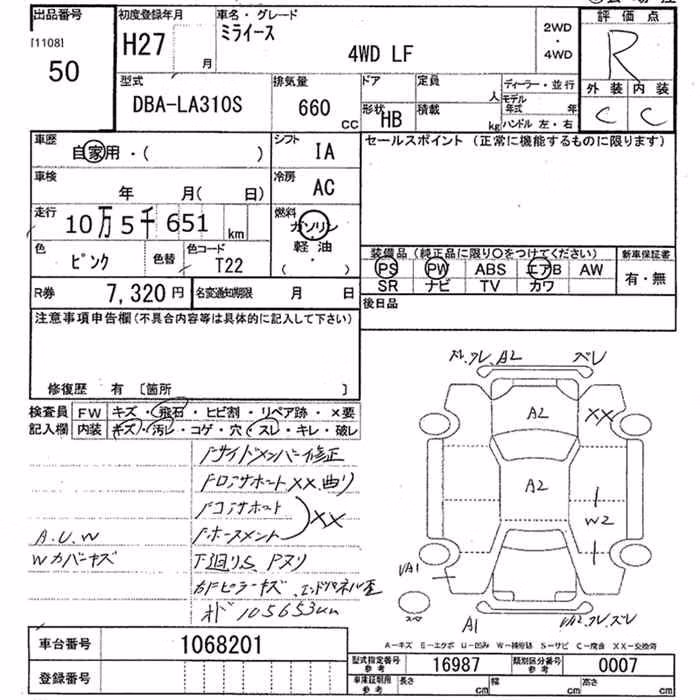 出品番号
[1108]
50
初度登録年月
H27
月
車名・グレード
ミライース
4WD LF
2WD
・
4WD
評価点
R
外装
内装
C
C
型式
DBA-LA310S
排気量
660
CC
ドア
定員
人
形状
HB
積載
kg
ディーラー・並行
モデル年式
年
ハンドル 左・右
車歴
自家用・( )
シフト
IA
車検
年 月( 日)
冷房
AC
走行
10万5千651 km
燃料
ガソリン
・
軽油
( )
色
ピンク
色替
色コード
T22
R券
7,320円
名変通知期限
月 日
セールスポイント (正常に機能するものに限ります)
装備品 (純正品に限り○をつけてください)
PS PW ABS エアB AW
SR ナビ TV カワ
新車保証書
有・無
後日品
注意事項申告欄(不具合内容等は具体的に記入して下さい)
修復歴 有 〔箇所 〕
検査員
記入欄
FW キズ・飛石・ヒビ割・リペア跡・×要
内装 キズ・汚レ・コゲ・穴・スレ・キレ・破レ
Fサイドメンバー修正
Fロアサポート××.曲り
Fコアサポート
××
A.U.W
Wカバーキズ
下廻りS、Pヌリ
カドピラーキズ、エンドパネル歪
オド105653km
A2
ズレ
A2
××
A2
W2
A1
スペ
A1
A-キズ E-エクボ U-凹み W-補修跡 S-サビ C-腐食 XX-交換済
車台番号
1068201
登録番号
型式指定番号
参考
16987
類別区分番号
参考
0007
車庫証明用
参考
長さ cm
幅 cm
高さ cm